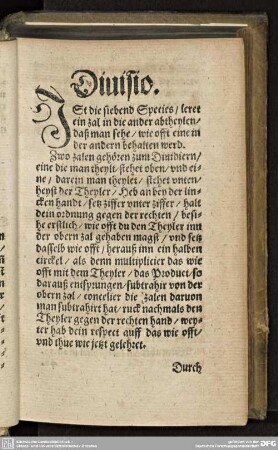 Diuisio.
ISt die siebend Species / leret
ein zal in die ander abtheylen /
daß man sehe / wie offt eine in
der andern behalten werd.
Zwo zalen gehören zum Diuidiern /
eine die man theylt stehet oben / vnd ei=
ne / darein man theylet / stehet vnten /
heyst der Theyler / Heb an bey der lin=
cken handt / setz ziffer vnter ziffer / halt
dein ordnung gegen der rechten / besi=
he erstlich / wie offt du den Theyler inn
der obern zal gehaben magst / vnd setz
dasselb wie offt / herauß inn ein halben
circkel / als denn multiplicier das wie
offt mit dem Theyler / das Product / so
darauß entsprungen / subtrahir von der
obern zal / cancelier die zalen daruon
man subtrahirt hat / ruck nachmals den
Theyler gegen der rechten hand / wey=
ter hab dein respect auff das wie offt /
vnd thue wie jetzt gelehret.
Durch